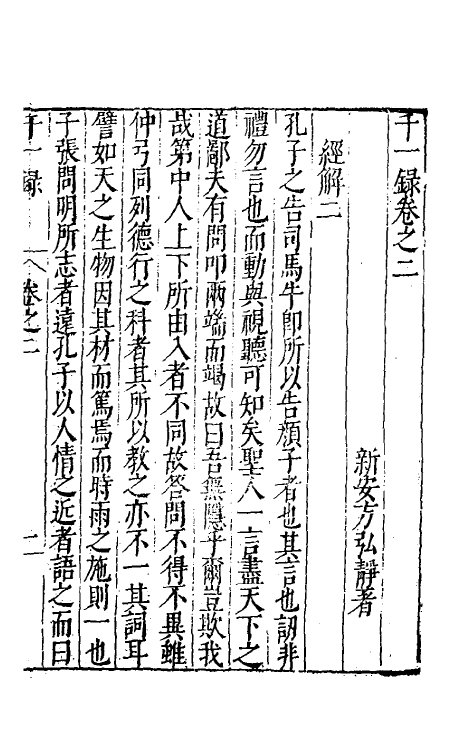 千一録卷之二
新安方弘靜著
經解二
孔子之告司馬牛即所以告顔子者也其言也訒非
禮勿言也而動與視聽可知矣聖人一言盡天下之
道鄙夫有問叩兩端而竭故曰吾無隱乎爾豈欺我
哉第中人上下所由入者不同故答問不得不異雖
仲弓同列德行之科者其所以教之亦不一其詞耳
譬如天之生物因其材而篤焉而時雨之施則一也
子張問明所志者遠孔子以人情之近者語之而曰
千一録 卷之二